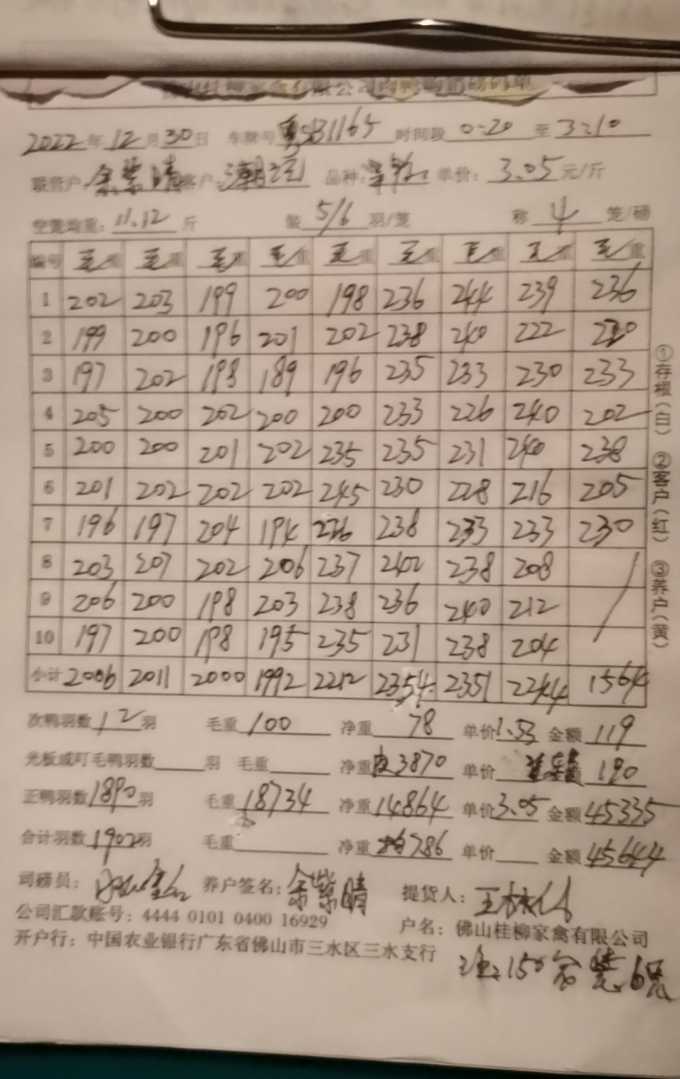 2022年12月30日 车牌号 粤 时间段 0-20 至 3:10
联营户 余紫晴 客户: 品种: 单价: 3.05元/斤
空笼均重: 11.12斤 装5/6羽/笼 称4笼/磅
编号 毛重 毛重 毛重 毛重 毛重 毛重 毛重 毛重 毛重
1 202 203 199 200 198 236 244 239 236
2 199 200 196 201 202 238 240 222
3 197 202 198 189 196 235 233 230 233
4 205 200 202 200 200 233 226 240 202
5 200 200 201 202 235 235 231 240 238
6 201 202 202 202 245 230 228 216 205
7 196 197 204 194 226 238 233 233 230
8 203 207 202 206 237 242 238 208
9 206 200 198 203 238 236 240 212
10 197 200 198 195 235 231 238 204
小计 2006 2011 2000 1992 2212 2354 2351 2244 1564
次鸭羽数12羽 毛重100 净重78 单价1.53 金额119
光板或叮毛鸭羽数 羽 毛重 净重 3870 单价 190
正鸭羽数1890羽 毛重18734 净重14864 单价3.05 金额45335
合计羽数1902羽 毛重 净重 786 单价 金额45644
司磅员: 养户签名: 余紫晴 提货人:
公司汇款账号: 4444 0101 0400 16929
户名: 佛山桂柳家禽有限公司
开户行: 中国农业银行广东省佛山市三水区三水支行
①存根(白) ②客户(红) ③养户(黄)